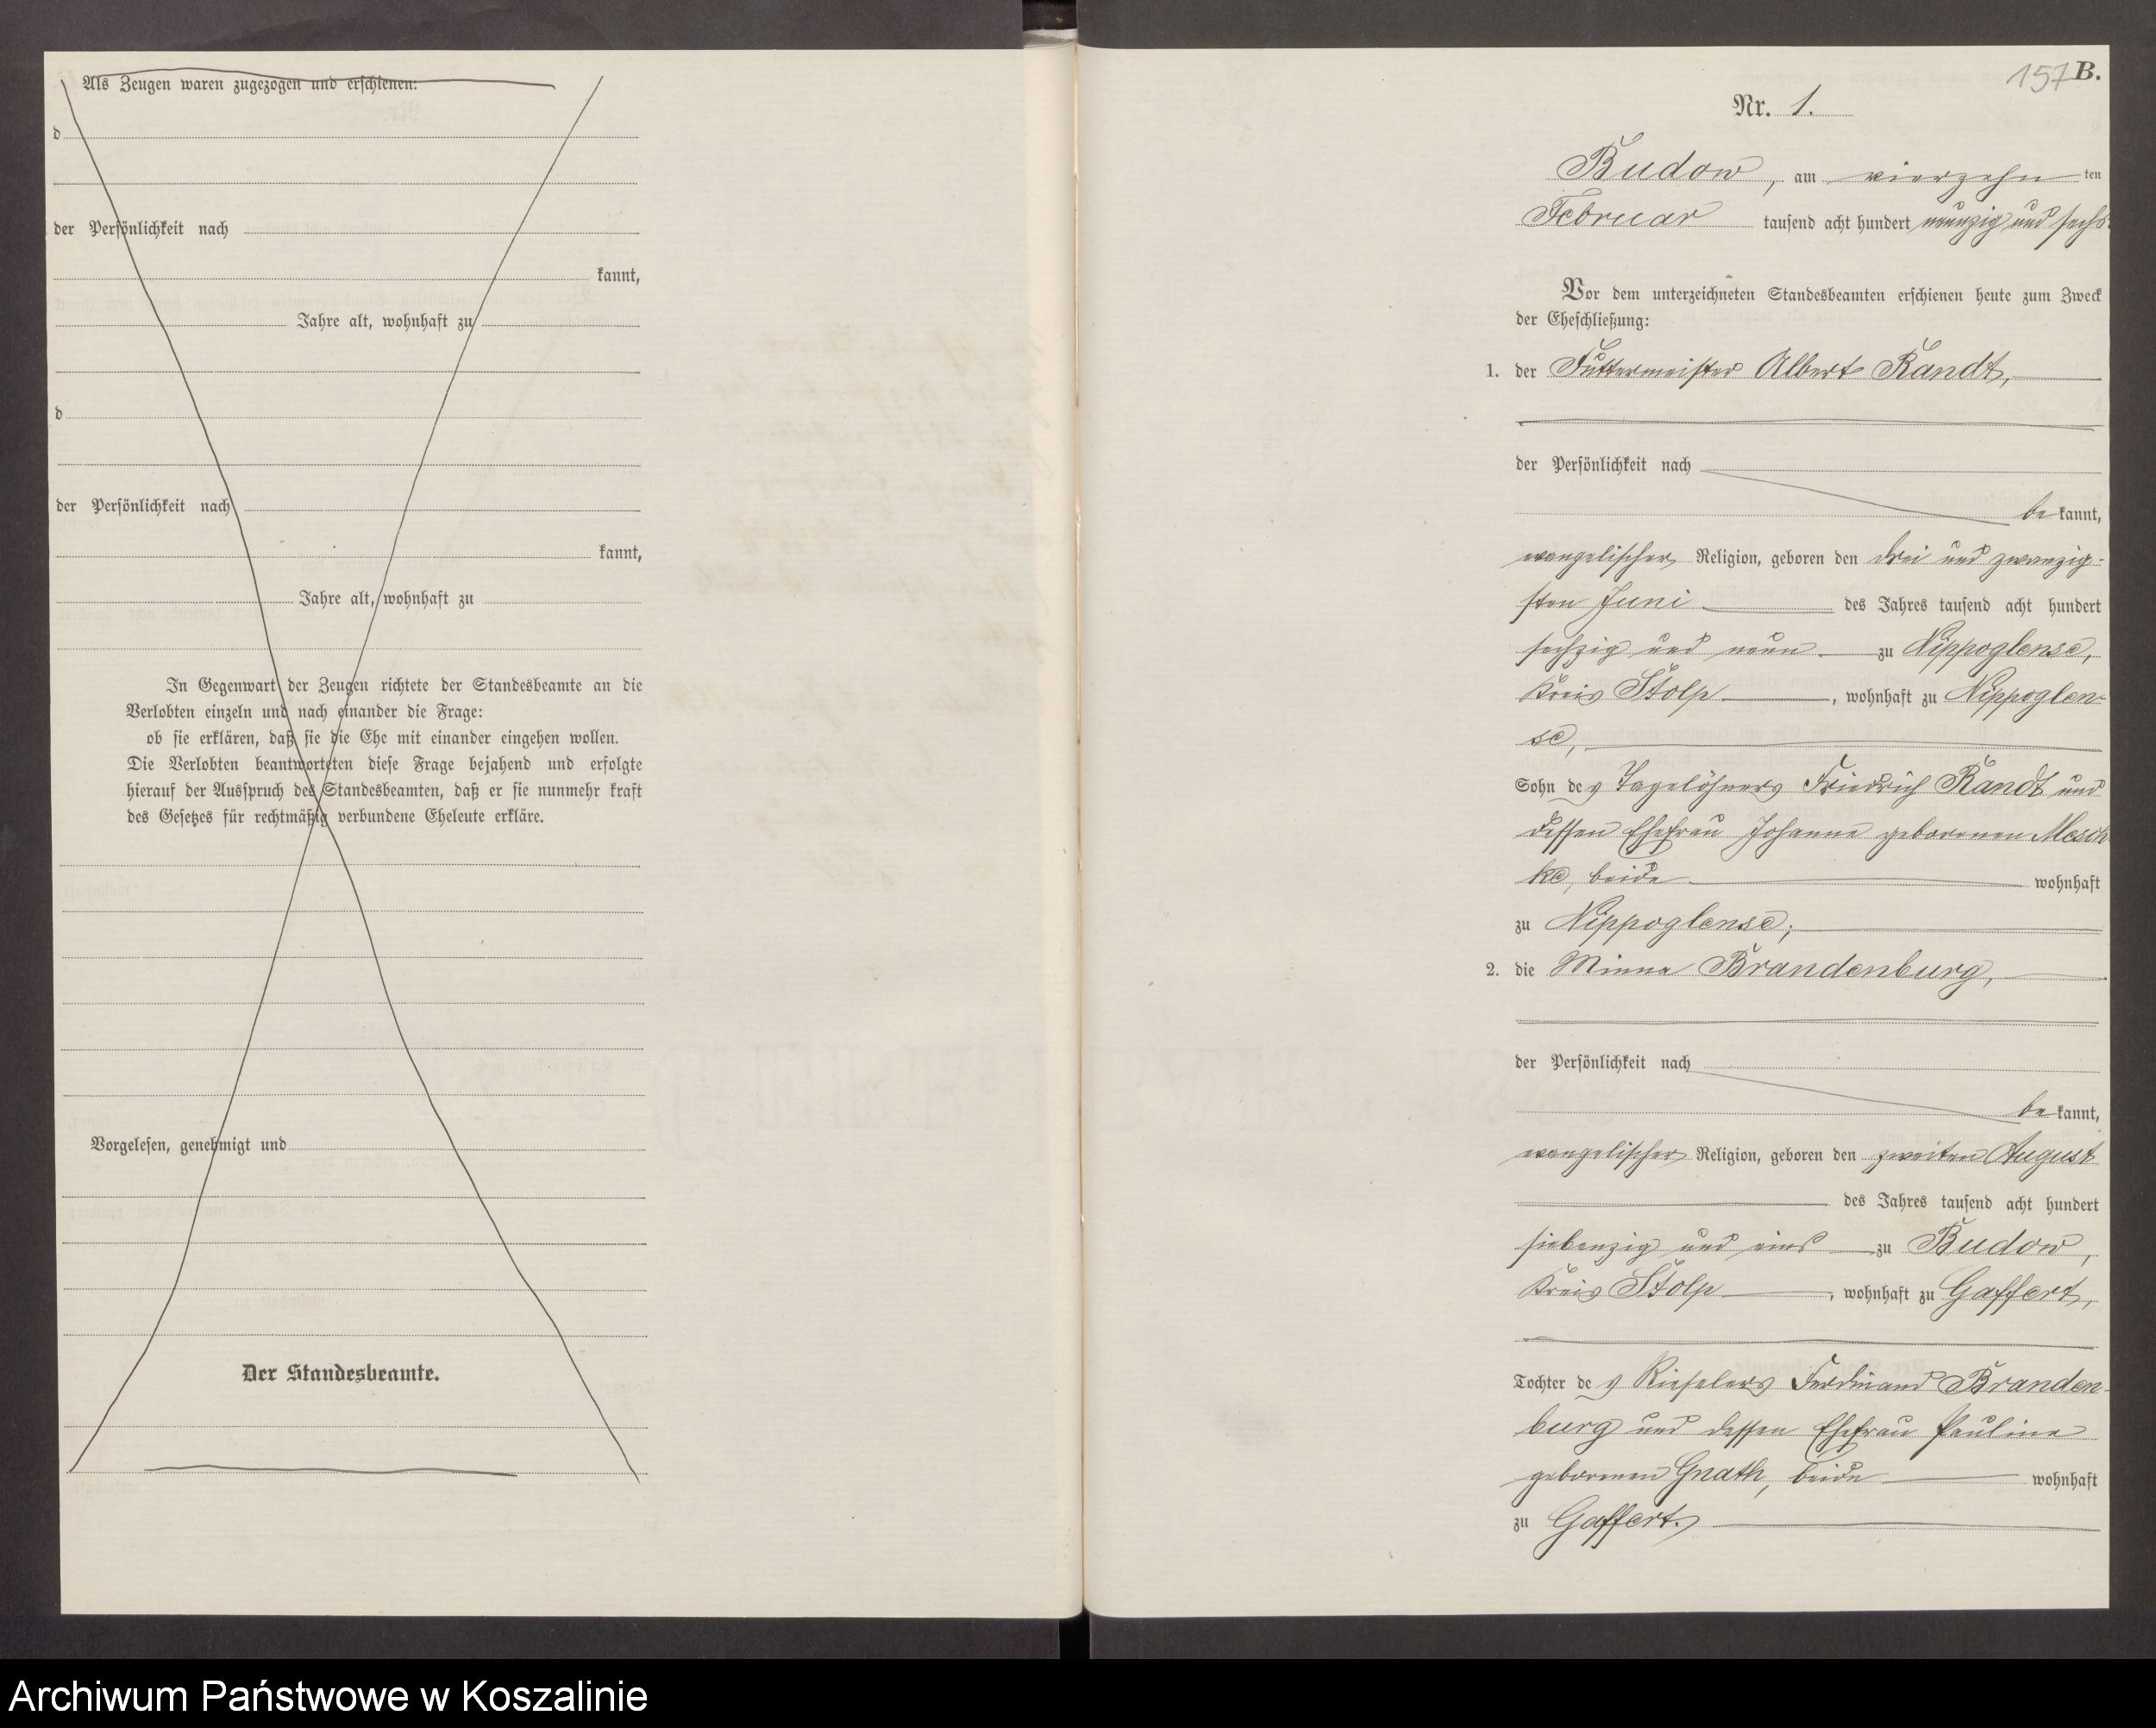 Als Zeugen waren zugezogen und erschienen:
d
der Persönlichkeit nach
kannt,
Jahre alt, wohnhaft zu
d
der Persönlichkeit nach
kannt,
Jahre alt, wohnhaft zu
In Gegenwart der Zeugen richtete der Standesbeamte an die
Verlobten einzeln und nach einander die Frage:
ob sie erklären, daß sie die Ehe mit einander eingehen wollen.
Die Verlobten beantworteten diese Frage bejahend und erfolgte
hierauf der Ausspruch des Standesbeamten, daß er sie nunmehr kraft
des Gesetzes für rechtmäßig verbundene Eheleute erkläre.
Vorgelesen, genehmigt und
Der Standesbeamte.
157 B.
Nr. 1.
Budow, am vierzehn ten
Februar tausend acht hundert neunzig und sechs
Vor dem unterzeichneten Standesbeamten erschienen heute zum Zweck
der Eheschließung:
1. der Futtermeister Albert Randt,
der Persönlichkeit nach
be kannt,
evangelischer Religion, geboren den drei und zwanzig-
sten Juni des Jahres tausend acht hundert
sechzig und neun zu Nippoglense,
Kreis Stolp, wohnhaft zu Nippoglen-
se,
Sohn des Tagelöhners Friedrich Randt und
dessen Ehefrau Johanne geborenen Mesch
ke, beide wohnhaft
zu Nippoglense;
2. die Minna Brandenburg,
der Persönlichkeit nach
be kannt,
evangelischer Religion, geboren den zweiten August
des Jahres tausend acht hundert
siebenzig und eins zu Budow,
Kreis Stolp, wohnhaft zu Gaffert,
Tochter des Rieselers Ferdinand Branden-
burg und dessen Ehefrau Pauline
geborenen Gnath, beide wohnhaft
zu Gaffert.
Archiwum Państwowe w Koszalinie